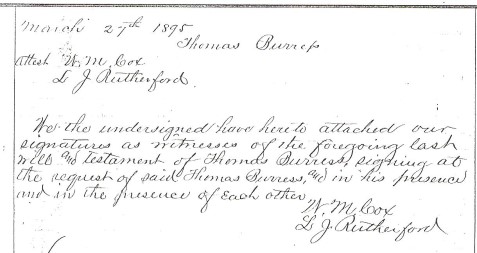 March 27th 1895
Thomas Burress
Attest W. M. Cox
L J Rutherford
We the undersigned have hereto attached our
signatures as witnesses of the foregoing last
will and testament of Thomas Burress, signing at
the request of said Thomas Burress, and in his presence
and in the presence of each other
W. M. Cox
L J Rutherford